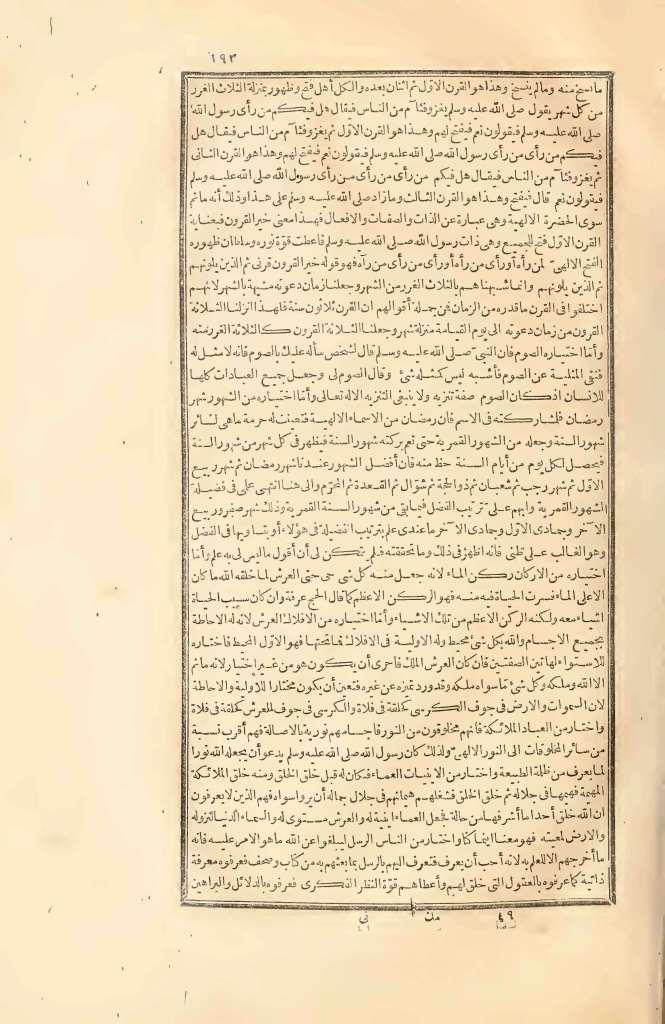 ١٩٣
مانسخ منه ومالم ينسخ وهذا هو القرن الاوّل ثم اثنان بعده والكل أهل فتح وظهور بمنزلة الثلاث الغرر
من كل شهر يقول صلى الله عليه وسلم يغزو فئام من الناس فيقال هل فيكم من رأى رسول الله
صلى الله عليه وسلم فيقولون نعم فيفتح لهم وهذا هو القرن الاوّل ثم يغزو فئام من الناس فيقال هل
فيكم من رأى من رأى رسول الله صلى الله عليه وسلم فيقولون نعم فيفتح لهم وهذا هو القرن الثانى
ثم يغزو فئام من الناس فيقال هل فيكم من رأى من رأى من رأى رسول الله صلى الله عليه وسلم
فيقولون نعم قال فيفتح وهذا هو القرن الثالث وما زاد صلى الله عليه وسلم على هذا وذلك أنه ما ثم
سوى الحضرة الالهية وهى عبارة عن الذات والصفات والافعال فهذا معنى خير القرون فبعناية
القرن الاوّل فتح للجميع وهى ذات رسول الله صلى الله عليه وسلم فاعطت قوّة نوره وسلطان ظهوره
الفتح الالهىّ لمن رآه أو رأى من رآه أو رأى من رأى من رآه فهو قوله خير القرون قرنى ثم الذين يلونهم
ثم الذين يلونهم وانما شبهناهم بالثلاث الغرر من الشهر وجعلنا زمان دعوته مشبهة بالشهر لانهم
اختلفوا فى القرن ما قدره من الزمان فمن جملة أقوالهم ان القرن ثلاثون سنة فلهذا أنزلنا الثلاثة
القرون من زمان دعوته الى يوم القيامة منزلة شهر وجعلنا الثلاثة القرون كالثلاثة الغرر منه
وأمّا اختياره الصوم فان النبىّ صلى الله عليه وسلم قال لشخص سأله عليك بالصوم فانه لا مثل له
فنفى المثلية عن الصوم فأشبه ليس كمثله شئ وقال الصوم لى وجعل جميع العبادات كلها
للانسان اذ كان الصوم صفة تنزيه ولا ينبغى التنزيه الا له تعالى وأمّا اختياره من الشهور شهر
رمضان فلمشاركته فى الاسم فان رمضان من الاسماء الالهية فتعينت له حرمة ما هى لسائر
شهور السنة وجعله من الشهور القمرية حتى تعم بركته شهور السنة فيظهر فى كل شهر من شهور السنة
فيحصل لكل يوم من أيام السنة حظ منه فان أفضل الشهور عندنا شهر رمضان ثم شهر ربيع
الاوّل ثم شهر رجب ثم شعبان ثم ذو الحجة ثم شوّال ثم القعدة ثم المحرّم والى هنا انتهى على فى فضيلة
الشهور القمرية وابهم على ترتيب الفضل فيما بقى من شهور السنة القمرية وذلك شهر صفر وربيع
الآخر وجمادى الاوّل وجمادى الآخر ما عندى علم بترتيب الفضيلة فى هؤلاء أو بتساويها فى الفضل
وهو الغالب على ظنى فانه اظهر فى ذلك وما تحققته فلم يتمكن لى أن أقول ما ليس لى به علم وأمّا
اختياره من الاركان ركن الماء لانه جعل منه كل شئ حى حتى العرش لما خلقه الله ما كان
الا على الماء فسرت الحياة فيه منه فهو الركن الاعظم كما قال الحج عرفة وان كان سبب الحياة
اشياء معه ولكنه الركن الاعظم من تلك الاشياء وأمّا اختياره من الافلاك العرش لانه له الاحاطة
بجميع الاجسام والله بكل شئ محيط وله الاولية فى الافلاك فما تحتها فهو الاوّل المحيط فاختاره
للاستواء لهاتين الصفتين فان كان العرش الملك فاحرى أن يكون هو من غير اختيار لانه ما ثم
الا الله وملكه وكل شئ ما سواه ملكه وقد ورد تميزه عن غيره فتعين أن يكون مختارا للاولية والاحاطة
لان السموات والارض فى جوف الكرسى كحلقة فى فلاة والكرسى فى جوف العرش كحلقة فى فلاة
واختار من العباد الملائكة فانهم مخلوقون من النور فاجسامهم نورية بالاصالة فهم أقرب نسبة
من سائر المخلوقات الى النور الالهىّ ولذلك كان رسول الله صلى الله عليه وسلم يدعو أن يجعله الله نورا
لما يعرف من ظلمة الطبيعة واختار من الاينيات العماء فكان له قبل خلق الخلق ومنه خلق الملائكة
المهيمة فهيمها فى جلاله ثم خلق الخلق فشغلهم هيمانهم فى جلال جماله أن يروا سواه فهم الذين لا يعرفون
ان الله خلق أحدا ما أشرفها من حالة فجعل العماء اينية له والعرش مستوى له والسماء الدنيا لنزوله
والارض لمعيته فهو معنا أينما كنا واختار من الناس الرسل ليبلغوا عن الله ما هو الامر عليه فانه
ما أخرجهم الا للعلم به لانه أحب أن يعرف فتعرف اليهم بالرسل بما بعثهم به من كتاب وصحف فعرفوه معرفة
ذاتية كما عرفوه بالعقول التى خلق لهم وأعطاهم قوّة النظر الفكرى فعرفوه بالدلائل والبراهين
٤٩ مك نى